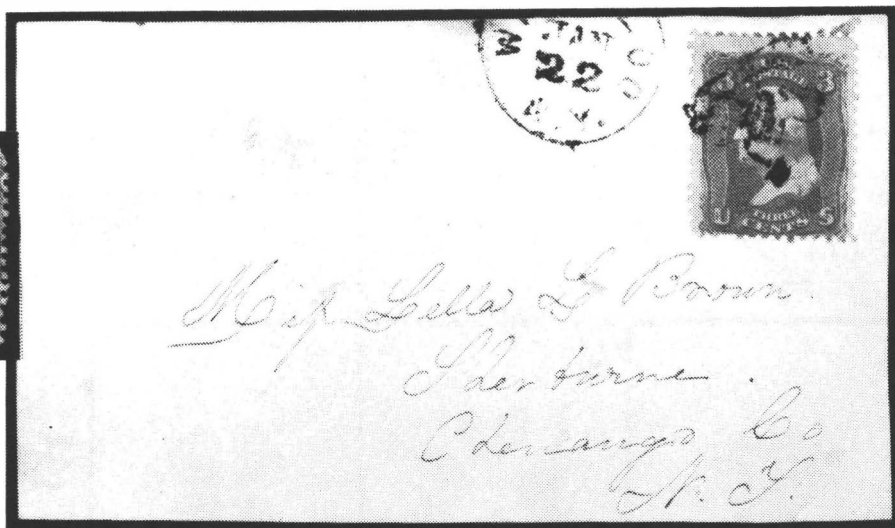 JAN
22
N.Y.
3
U.S.
POSTAGE
U THREE S
CENTS
Miſs Lella G Brown.
Sherburne.
Chenango Co
N. Y.